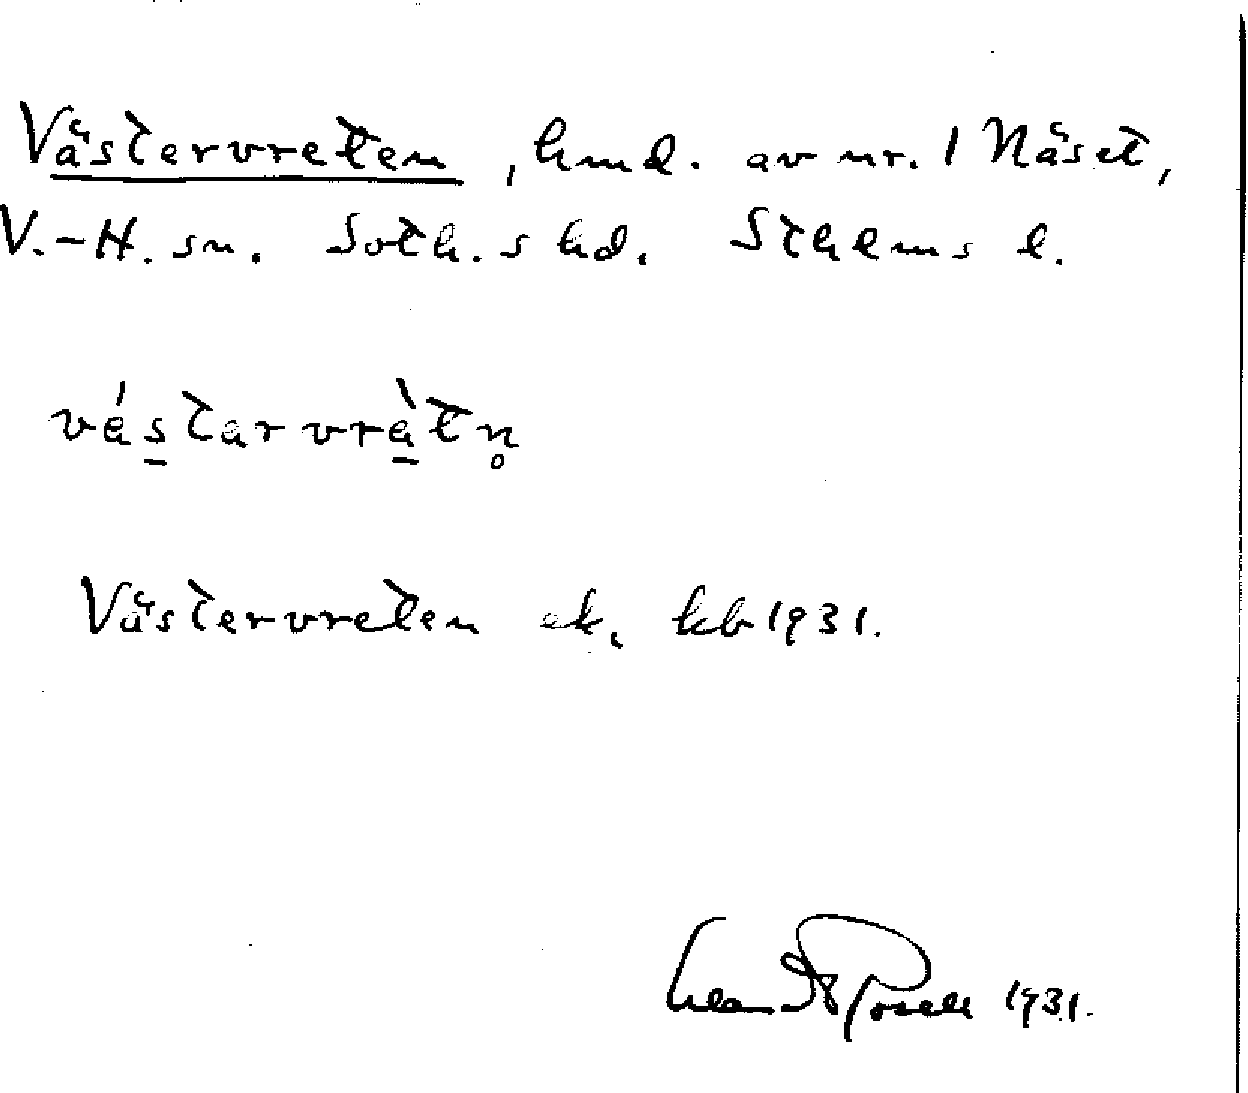 Västervreten, hmd. av nr. 1 Näset,
V.-H. sn. Soth.s hd. Sthlms l.
vástarvràtn̥
Västervreten ek. kb 1931.
1931.